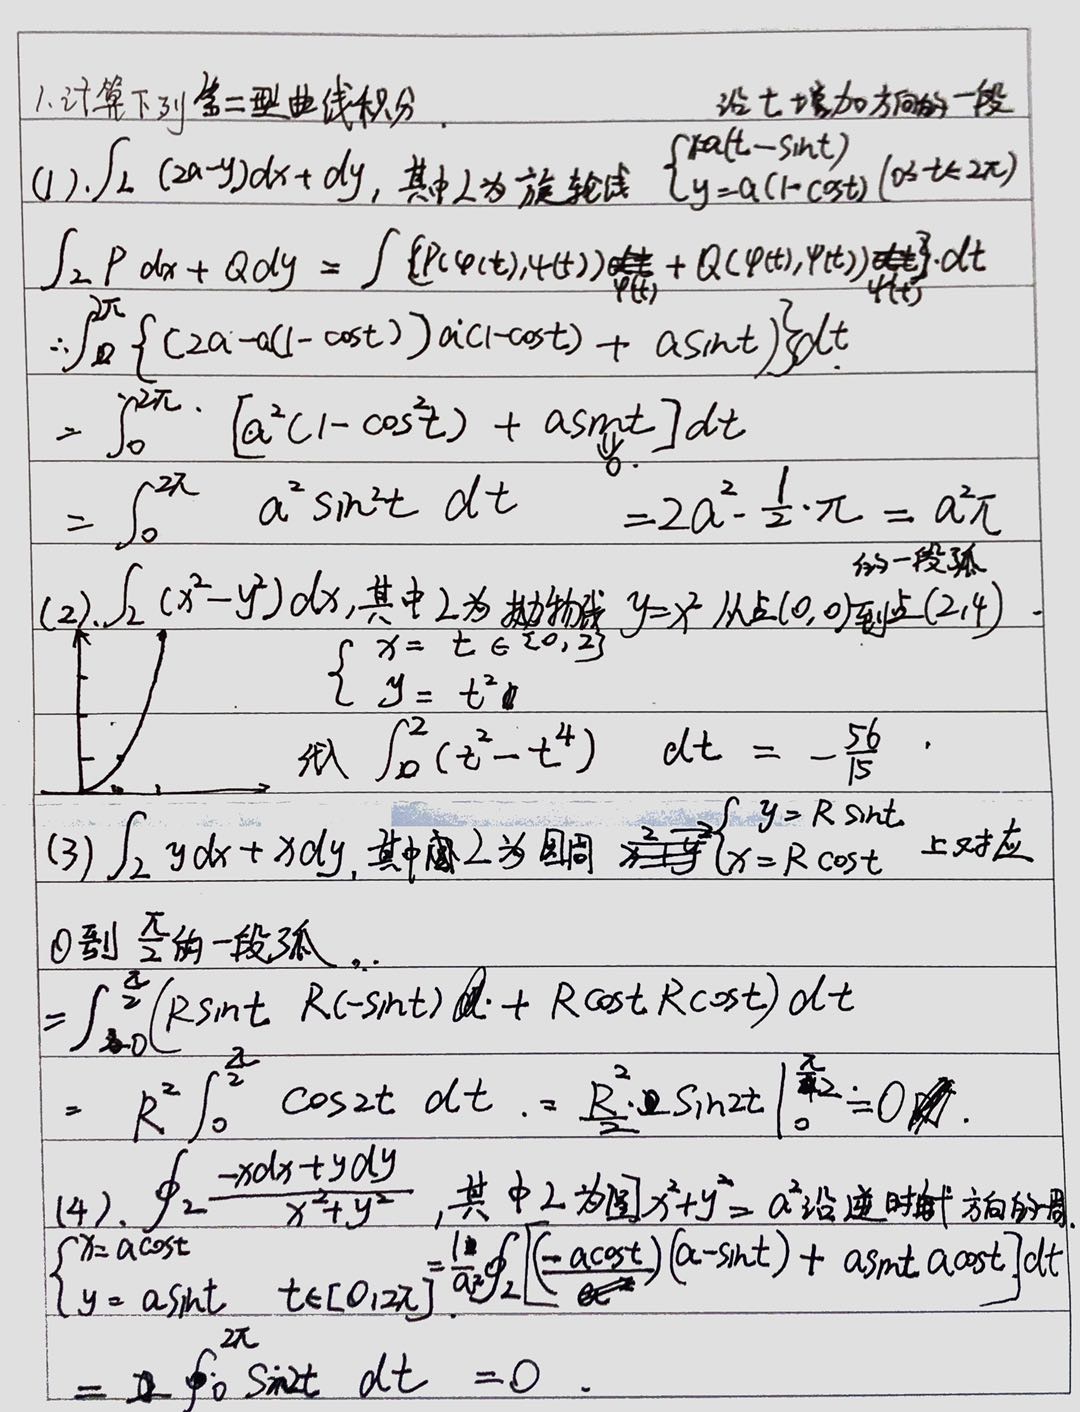 1.计算下列第二型曲线积分.
沿t增加方向的一段
(1).∫L (2a-y)dx+dy, 其中L为旋轮线 {x=a(t-sint) y=a(1-cost) (0≤t≤2π)
∫L P dx + Q dy = ∫ {P(φ(t),ψ(t)) φ'(t) + Q(φ(t),ψ(t)) ψ'(t)}·dt
∴∫₀^2π {(2a-a(1-cost))a(1-cost) + asint)}dt.
= ∫₀^2π. [a²(1-cos²t) + asint]dt
⇓ 0.
= ∫₀^2π a²sin²t dt = 2a²·1/2·π = a²π
的一段弧
(2).∫L (x²-y²)dx,其中L为抛物线 y=x² 从点(0,0)到点(2,4).
{x= t∈[0,2]
y= t²
代入 ∫₀²(t²-t⁴) dt = -56/15.
(3) ∫L ydx+xdy, 其中L为圆周 {y=Rsint x=Rcost 上对应
0到 π/2 的一段弧..
= ∫₀^π/2 (Rsint R(-sint) + Rcost Rcost)dt
= R² ∫₀^π/2 cos2t dt .= R²/2·sin2t |₀^π/2 = 0.
(4). ∮L (-xdx+ydy)/(x²+y²) ,其中L为圆x²+y²=a²沿逆时针方向的一周.
{x=acost
y=asint t∈[0,2π] = 1/a² ∮L [(-acost)(a-sint) + asint acost]dt
= ∮₀^2π sin2t dt =0.